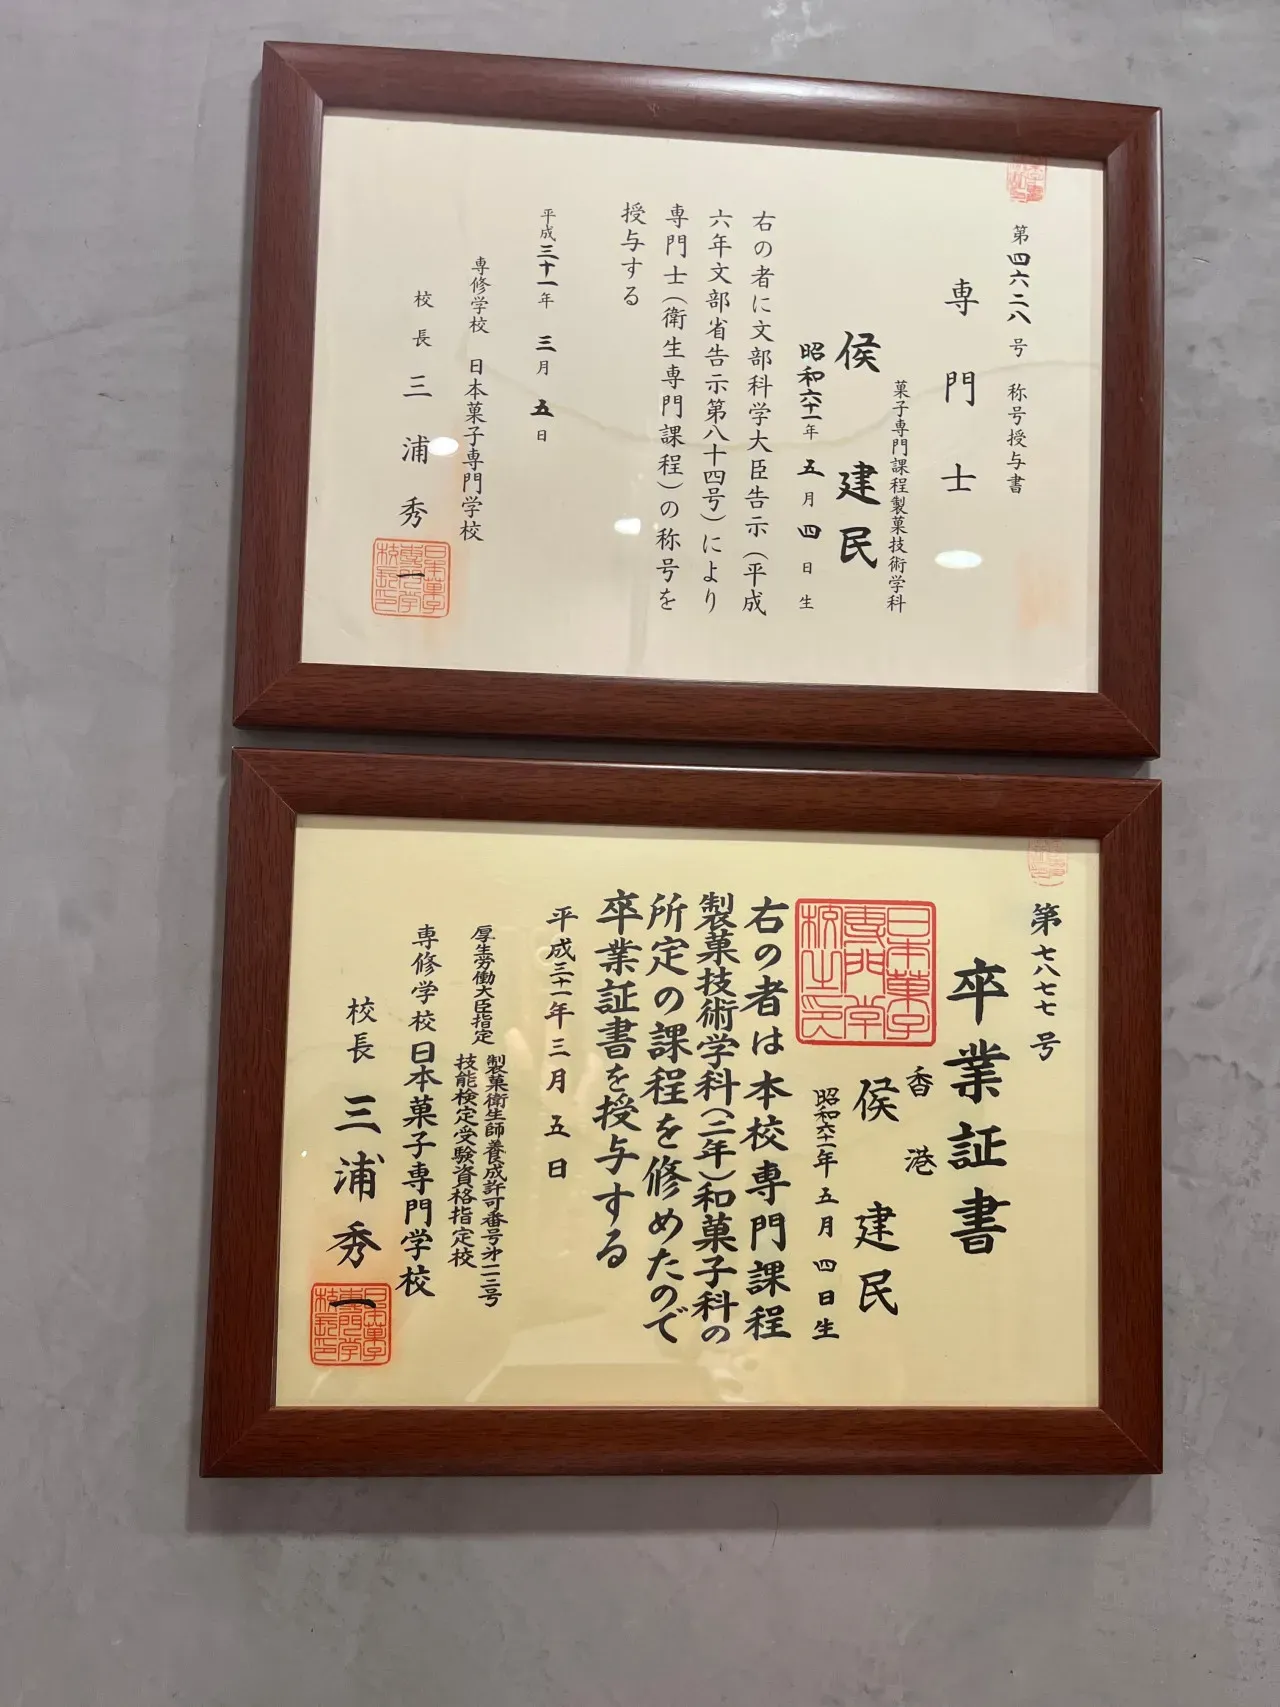 第四六二八号 称号授与書
専門士
菓子専門課程製菓技術学科
侯 建民
昭和六十一年 五月 四日生
右の者に文部科学大臣告示（平成
六年文部省告示第八十四号）により
専門士（衛生専門課程）の称号を
授与する
平成三十一年 三月 五日
専修学校 日本菓子専門学校
校長 三浦秀一
第七八七七号
卒業証書
香港
侯 建民
昭和六十一年五月四日生
右の者は本校専門課程
製菓技術学科（二年）和菓子科の
所定の課程を修めたので
卒業証書を授与する
平成三十一年三月五日
厚生労働大臣指定
製菓衛生師養成許可番号第一三号
技能検定受験資格指定校
専修学校日本菓子専門学校
校長 三浦秀一